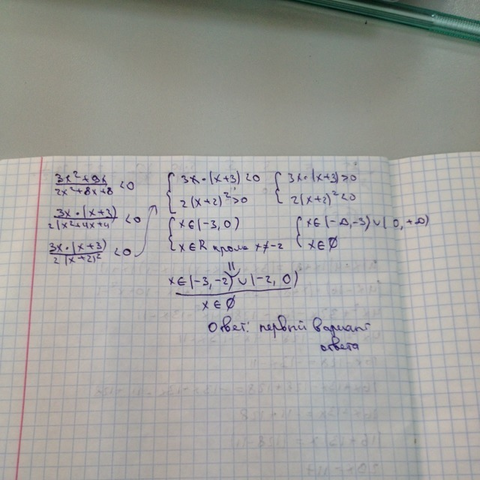 3x²+9x / 2x²+8x+8 <0
3x·(x+3) / 2(x²+4x+4) <0
3x·(x+3) / 2(x+2)² <0
{ 3x·(x+3)<0
2(x+2)²>0
{ x∈(-3, 0)
x∈R кроме x≠-2
{ 3x·(x+3)>0
2(x+2)²<0
{ x∈(-∞,-3)∪(0,+∞)
x∈∅
x∈(-3,-2)∪(-2, 0)
x∈∅
Ответ: первый вариант
ответа